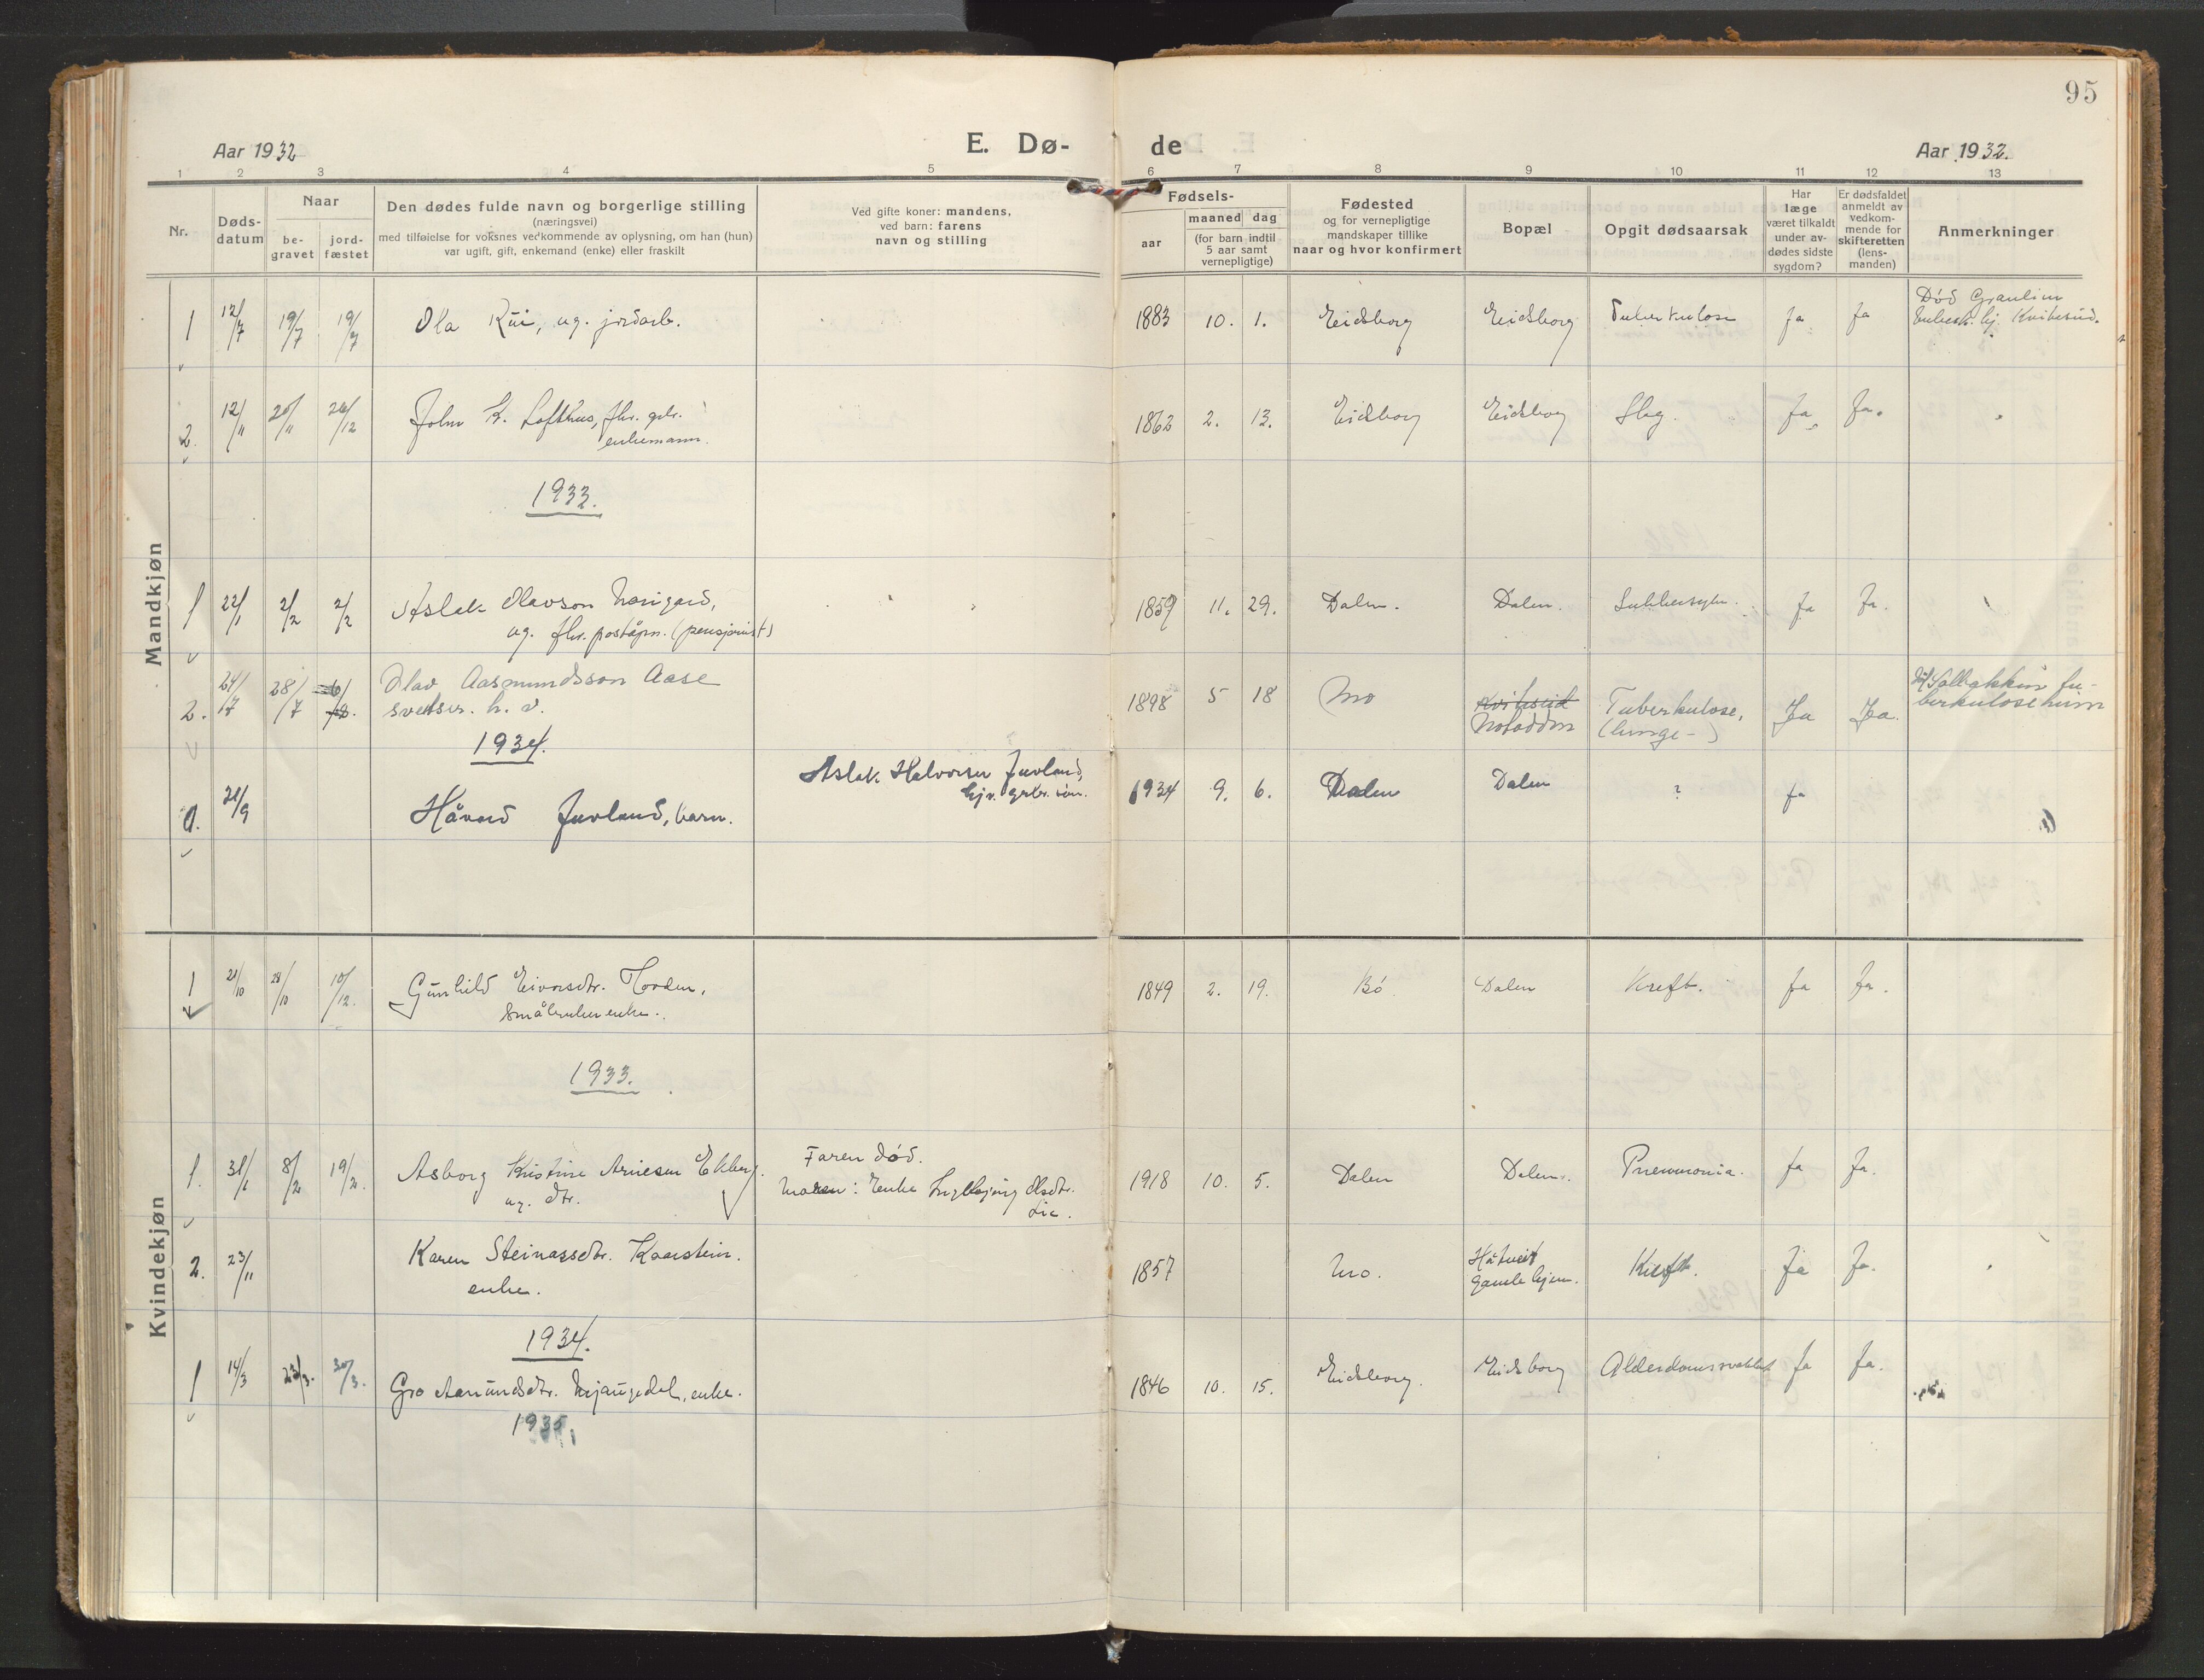 95
Aar 1932
E. Dø-
de
Aar 1932.
1 2 3 4 5 6 7 8 9 10 11 12 13
Nr.
Døds-
datum
Naar
be-
gravet
jord-
fæstet
Den dødes fulde navn og borgerlige stilling
(næringsvei)
med tilføielse for voksnes vedkommende av oplysning, om han (hun)
var ugift, gift, enkemand (enke) eller fraskilt
Ved gifte koner: mandens,
ved barn: farens
navn og stilling
Fødsels-
aar
maaned dag
(for barn indtil
5 aar samt
vernepligtige)
Fødested
og for vernepligtige
mandskaper tillike
naar og hvor konfirmert
Bopæl
Opgit dødsaarsak
Har
læge
været tilkaldt
under av-
dødes sidste
sygdom?
Er dødsfaldet
anmeldt av
vedkom-
mende for
skifteretten
(lens-
manden)
Anmerkninger
Mandkjøn
1 12/7 19/7 19/7 Ola Rui, ug. jordarb. 1883 10. 1. Eidsborg Eidsborg Tuberkulose Ja Ja Død Granlim
tuberk. hj. Kviteseid.
2. 12/11 20/11 26/12 John K. Lofthus, fhv. gbr.
enkemann.
1862 2. 13. Eidsborg Eidsborg Slag. Ja Ja.
1933.
1 22/1 2/2 2/2 Aslak Olavson
ug. fhv. poståpn. (pensjonist)
1859 11. 29. Dalen. Dalen. Sukkersyke. Ja Ja.
2. 24/7 28/7 Olav Aasmundsson Aase
1898 5 18 Mo Kviteseid
Notodden
Tuberkulose,
(lunge-)
Ja Ja.
1934.
1. 21/9 Håvard Juvland, barn.
Aslak Halvorsen Juvland,
1934 9. 6. Dalen Dalen ? Ja
Kvindekjøn
1 21/10 28/10 10/12. Gunhild Eivorsdtr. Norden.
enke.
1849 2. 19. Bø Dalen Kreft. Ja Ja.
1933.
1. 31/1 8/2 19/2. Asborg Kristine Arnesen Ekberg.
ug. dtr.
Faren død.
Moren: Enke Ingebjørg Olsdtr.
Lie.
1918 10. 5. Dalen Dalen. Pneumonia. Ja Ja.
2. 23/11 Karen Steinarsdtr. Kaarstein.
enke.
1857 Mo. Håtveit
Gamle hjem.
Kreft. Ja Ja.
1934.
1 14/3 23/3. 30/3. Gro Aamundsdtr. Mjaugedal, enke.
1846 10. 15. Eidsborg. Eidsborg Alderdomssvakhet Ja Ja.
1935.